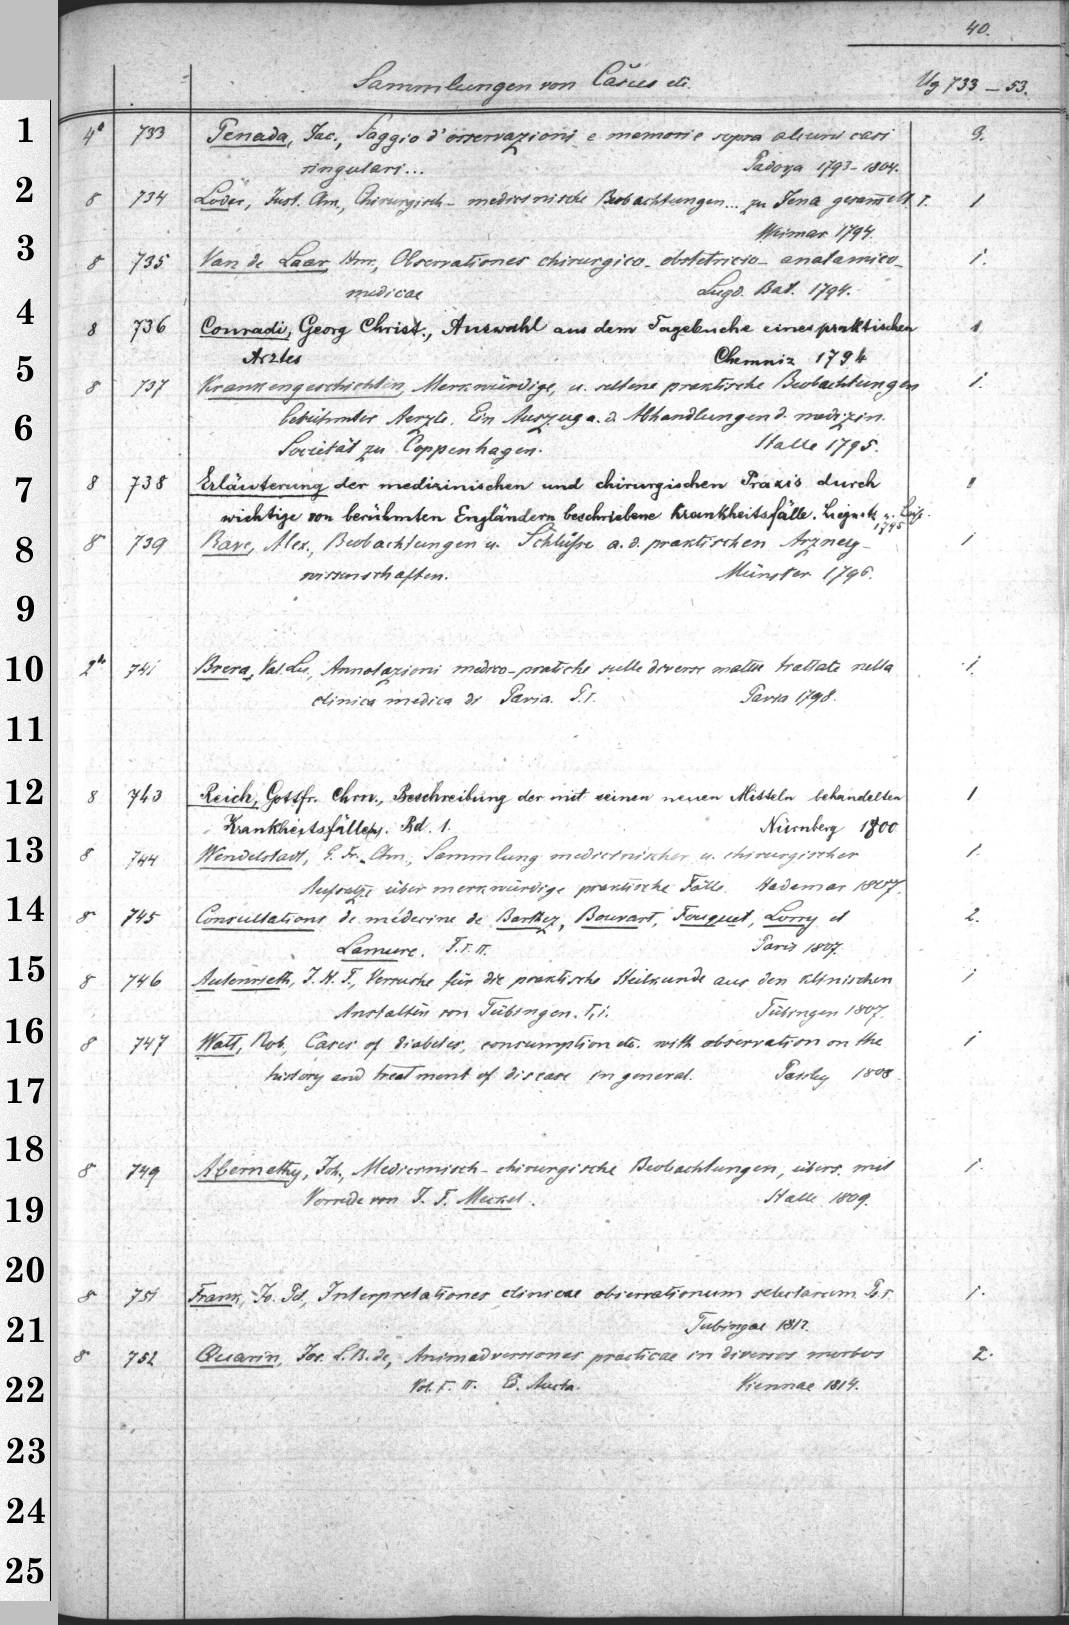 40.
Sammlungen von Casus etc. Ug 733 – 53.
1 4° 733 Penada, Jac., Saggio d'osservazioni e memorie sopra alcuni casi 3.
singulari... Padova 1793–1804.
2 8 734 Loder, Just. Chn., Chirurgisch-medicinische Beobachtungen... zu Jena gesammelt. T. 1
Weimar 1794.
3 8 735 Van de Laar, Hnr., Observationes chirurgico-obstetricio-anatomico- 1.
medicae Lugd. Bat. 1794.
4 8 736 Conradi, Georg Christ., Auswahl aus dem Tagebuche eines praktischen 1
Arztes Chemniz 1794
5 8 737 Krankengeschichten, Merkwürdige, u. seltene praktische Beobachtungen 1.
6 berühmter Aerzte. Ein Auszug a. d. Abhandlungen d. medizin.
Societät zu Coppenhagen. Halle 1795.
7 8 738 Erläuterung der medizinischen und chirurgischen Praxis durch 1
wichtige von berühmten Engländern beschriebene Krankheitsfälle. Liegnitz u. Leipz.
1795
8 8 739 Rave, Alex., Beobachtungen u. Schlüsse a. d. praktischen Arzney- 1
wissenschaften. Münster 1796.
9
10 2° 741 Brera, Val. Lu., Annotazioni medico-pratiche sulle diverse mattie trattate nella 1.
clinica medica di Pavia. T. I. Pavia 1798.
11
12 8 743 Reich, Gottfr. Chrn., Beschreibung der mit seinen neuen Mitteln behandelten 1
Krankheitsfälle. Bd. 1. Nürnberg 1800
13 8 744 Wendelstadt, G. Fr. Chn., Sammlung medicinischer u. chirurgischer 1.
Aufsätze über merkwürdige praktische Fälle. Hadamar 1807.
14 8 745 Consultations de médecine de Barthez, Bouvart, Fouquet, Lorry et 2.
Lamure. T. I. II. Paris 1807.
15 8 746 Autenrieth, J. H. F., Versuche für die praktische Heilkunde aus den klinischen 1
Anstalten von Tübingen. T, i. Tübingen 1807.
16 8 747 Watt, Rob., Cases of diabetes, consumption etc. with observation on the 1
17 history and treatment of disease in general. Paisley 1808
18 8 749 Abernethy, Joh., Medicinisch-chirurgische Beobachtungen, übers. mit 1.
19 Vorrede von J. F. Meckel. Halle 1809.
20 8 751 Frank, Jo. Pet., Interpretationes clinicae observationum selectarum P. I. 1.
21 Tubingae 1812.
8 752 Quarin, Jos. L. B. de, Animadversiones practicae in diversos morbos 2.
22 Vol. I. II. Ed. Aucta. Viennae 1814.
23
24
25